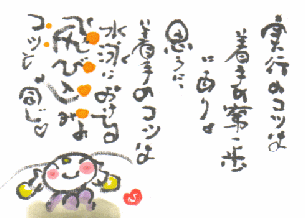 実行のコツは
着手の第一歩
にあり。
思うに
着手のコツは
水泳における
コツと同じ♡